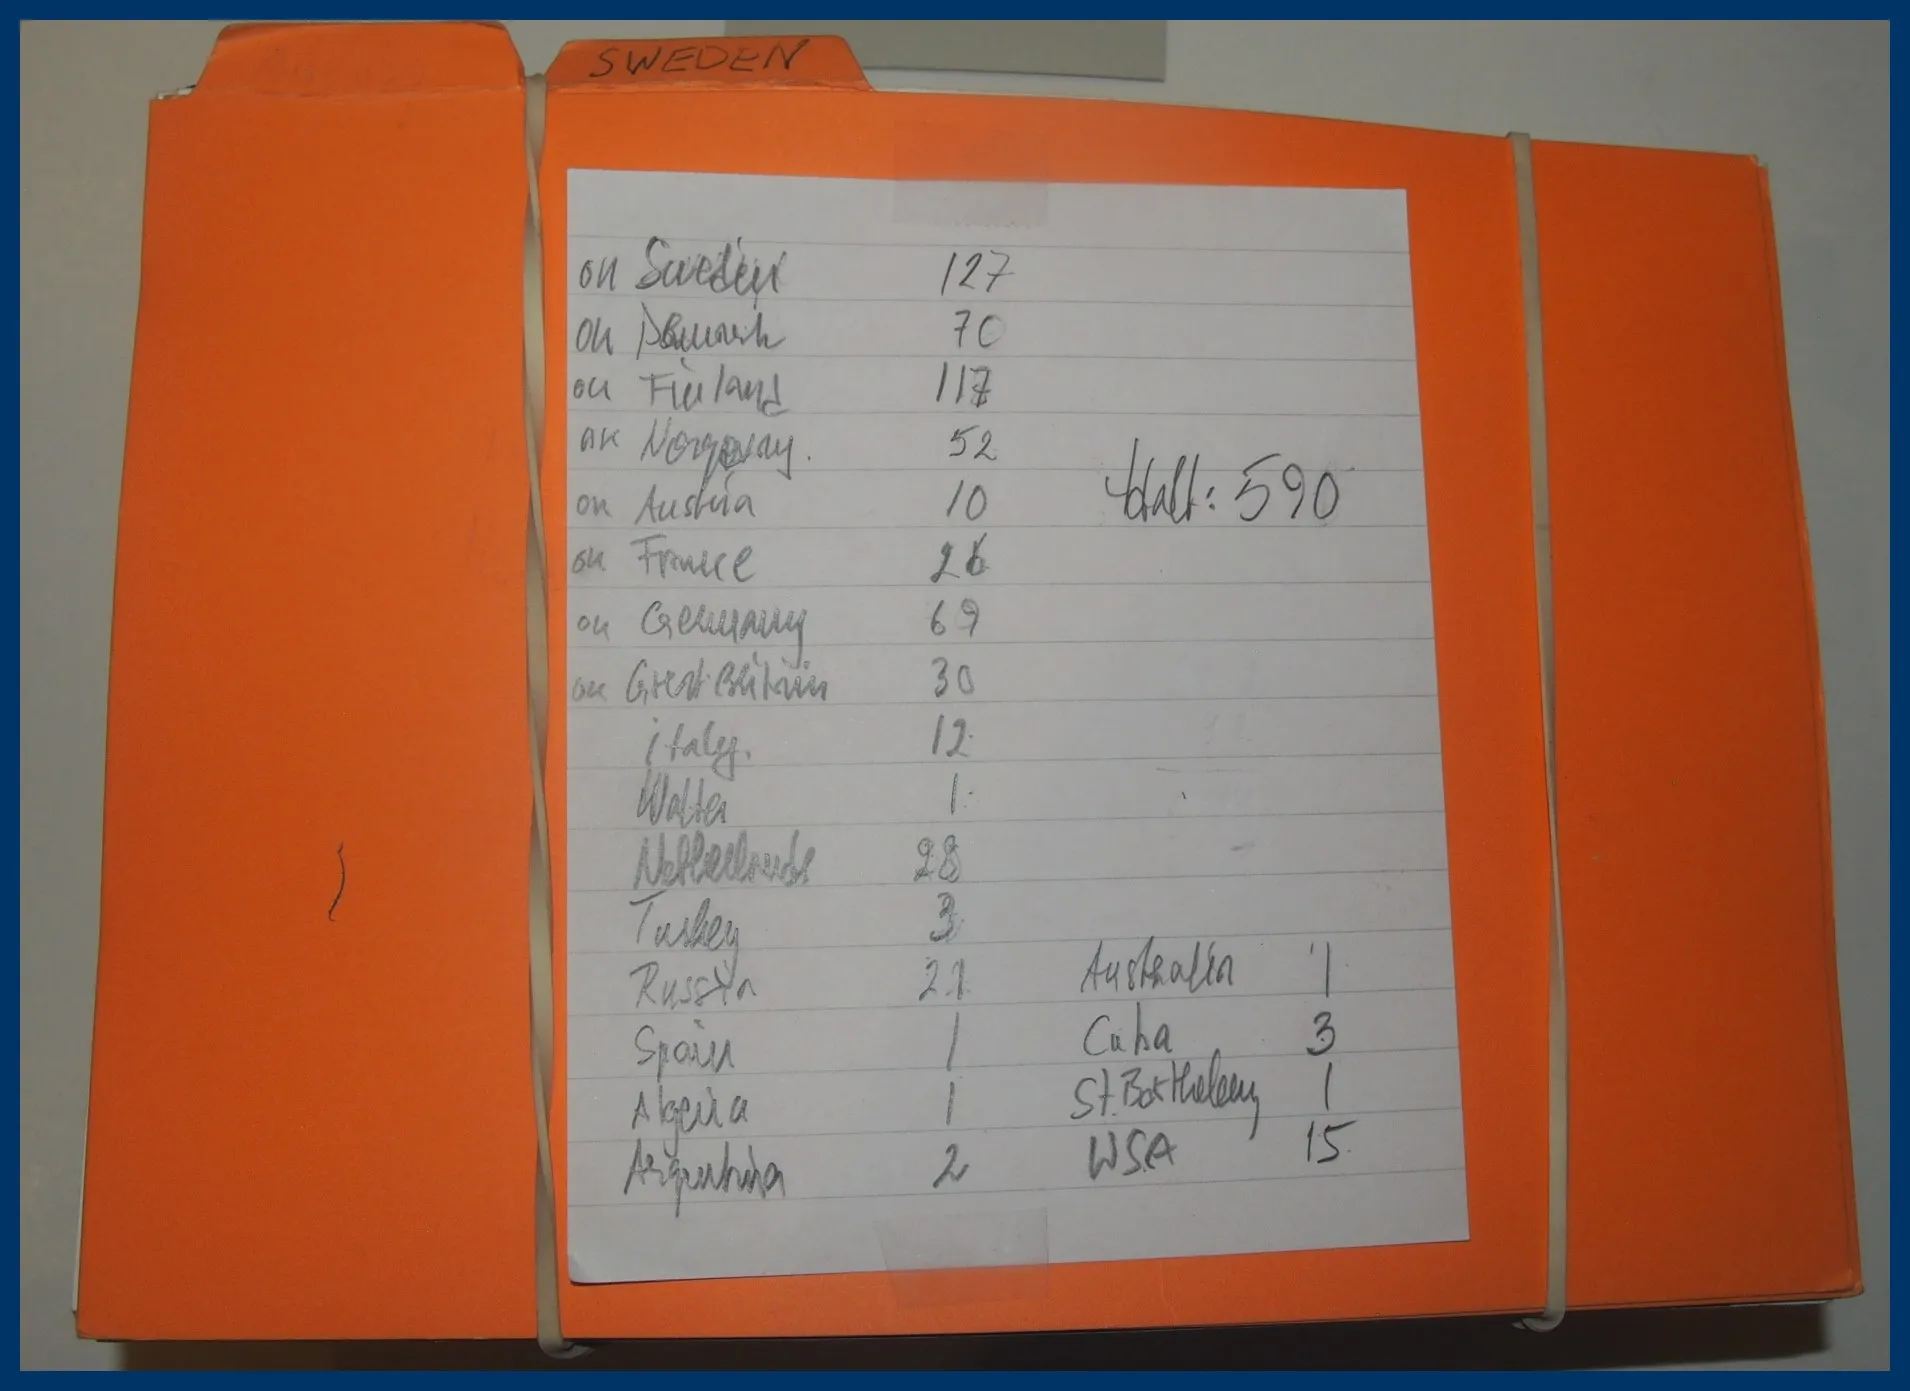 SWEDEN
on Sweden 127
on Danmark 70
on Finland 117
on Norgway. 52
on Austria 10
on France 26
on Germany 69
on Great Britain 30
italy. 12
Malta 1
Netherlands 28
Turkey 3
Russia 21
Spain 1
Algeria 1
Argentina 2
totalt: 590
Australia 1
Cuba 3
St. Barthelemy 1
USA 15